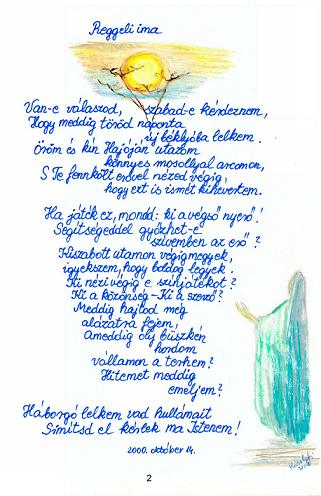 Reggeli ima
Van-e válaszod, szabad-e kérdeznem,
Hogy meddig töröd naponta
új béklyóba lelkem.
Öröm és kín Hajóján utazom
könnyes mosollyal arcomon,
S Te fennkölt erővel nézed végig,
hogy ezt is ismét kihevertem.
Ha játék ez, mondd: ki a végső nyerő!
Segítségeddel győzhet-e
szívemben az erő?
Kiszabott utamon végigmegyek,
igyekszem, hogy boldog legyek.
Ki nézi végig e színjátékot?
Ki a közönség-Ki a szerző?
Meddig hajtod még
alázatra fejem,
Ameddig oly büszkén
hordom
vállamon a terhem?
Hitemet meddig
emeljem?
Háborgó lelkem vad hullámait
Símítsd el kérlek ma Istenem!
2000. október 14.
2